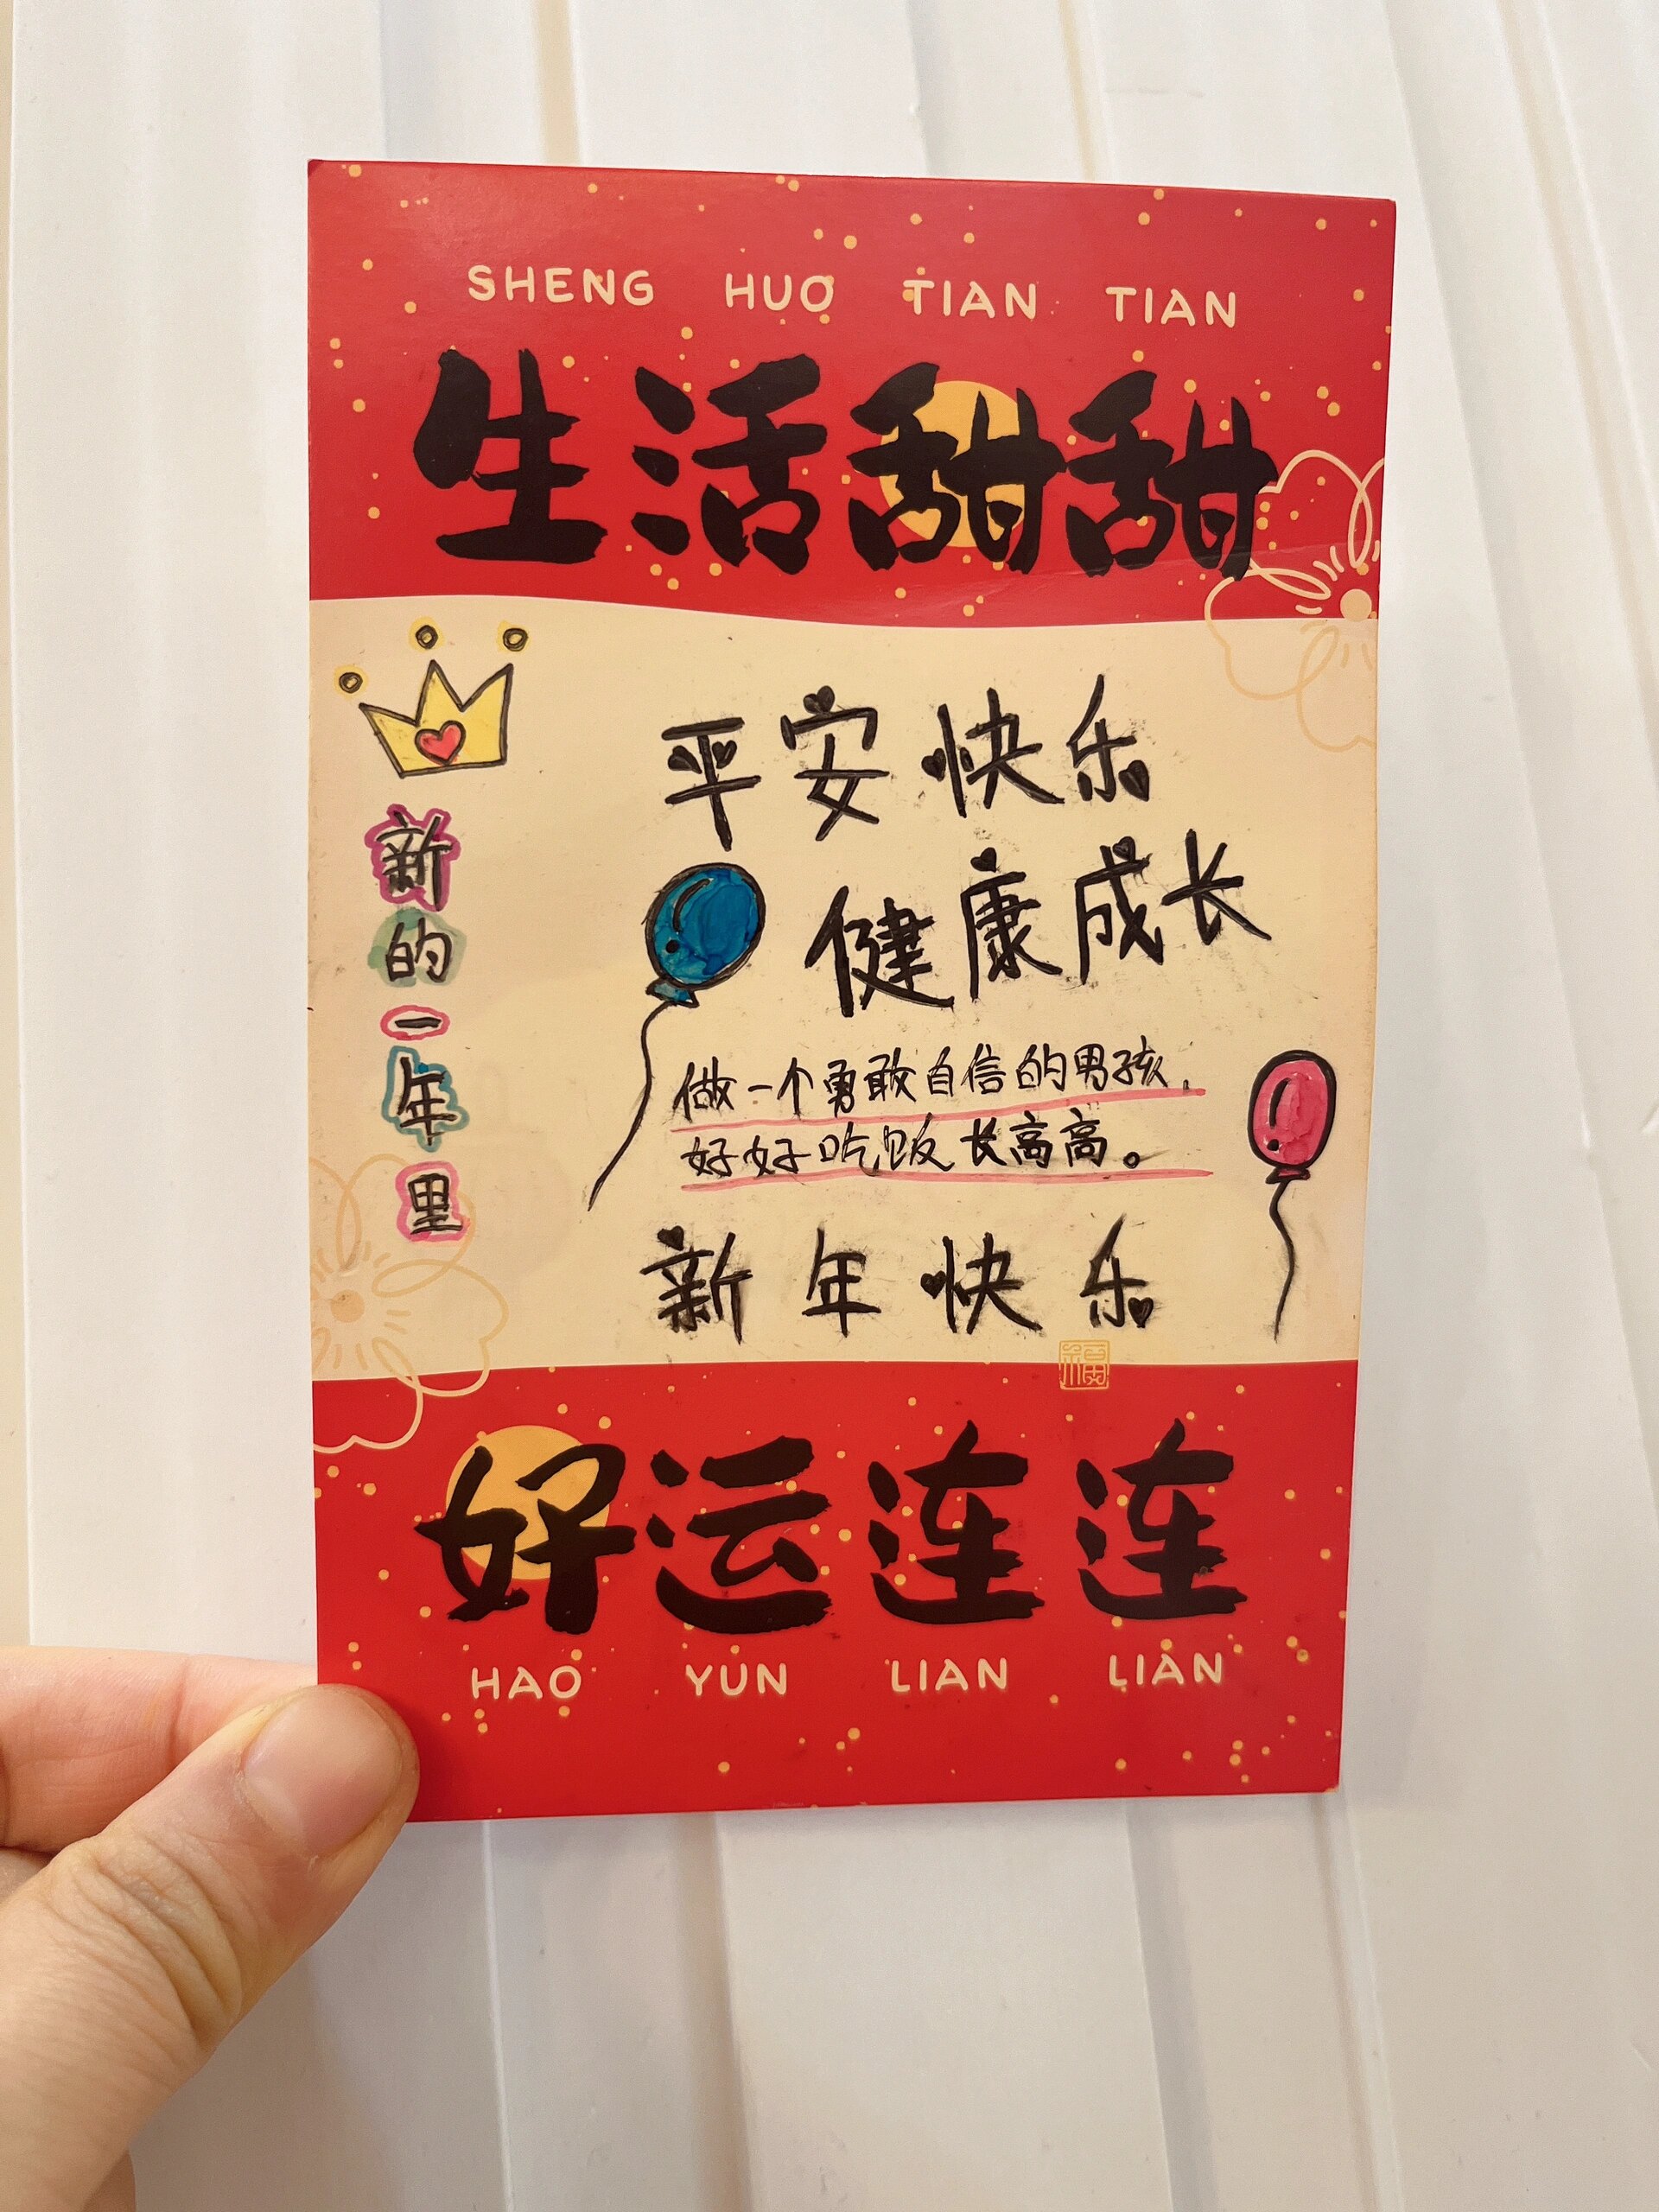 SHENG HUO TIAN TIAN
生活甜甜
新的一年里
平安快乐
健康成长
做一个勇敢自信的男孩，
好好吃饭长高高。
新年快乐
福
好运连连
HAO YUN LIAN LIAN